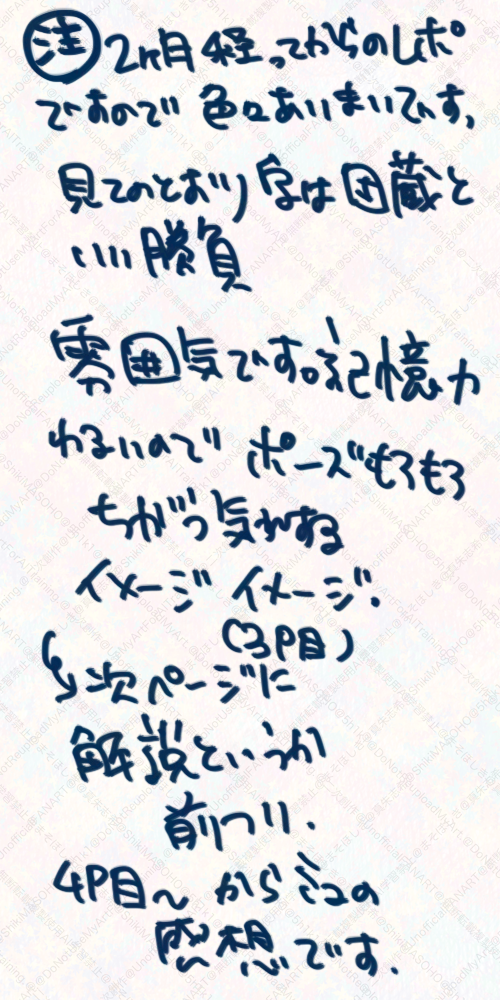 注 2ヶ月経ってからのレポ
ですので 色々あいまいです、
見てのとおり 字は 田蔵と
いい勝負
雰囲気です。記憶力
わるいので ポーズもろもろ
ちがう気がする
イメージ イメージ.
(3P目)
次ページに
解説というか
前フリ.
4P目〜 から の
感想です.